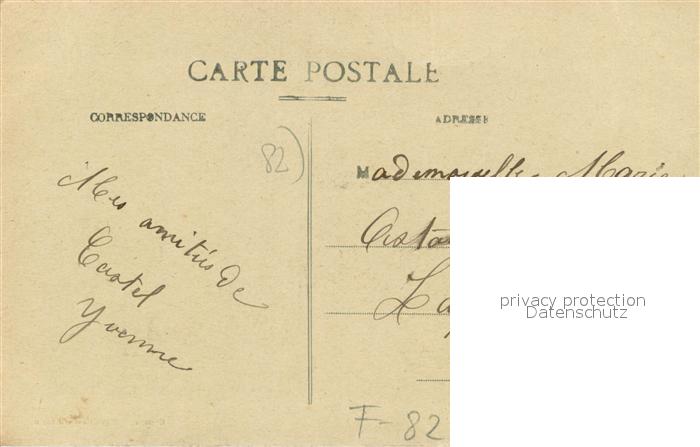 CARTE POSTALE
CORRESPONDANCE
ADRESSE
82)
Mes amitiés de
Castel
Yvonne
Mademoiselle Marie
privacy protection
Datenschutz
F-82